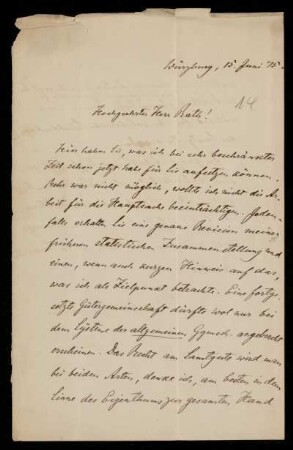 Würzburg, 15. Juni 75.
14
Hochgeehrter Herr Rath!
Hier haben Sie, was ich bei sehr beschränkter
Zeit schon jetzt habe für Sie aufsetzen können.
Mehr war nicht möglich, wollte ich nicht die Ar-
beit für die Hauptsache beeinträchtigen. Jeden-
falls erhalten Sie eine genaue Revision meiner
früheren statistischen Zusammenstellung und
einen, wenn auch kurzen Hinweis auf das,
was ich als Zielpunkt betrachte. Eine fortge-
setzte Gütergemeinschaft dürfte wol nur bei
dem Systeme der allgemeinen Ggmsch. angebracht
erscheinen. Das Recht am Samtgute wird man
bei beiden Arten, denke ich, am besten in dem
Sinne des Eigenthums zur gesamten Hand